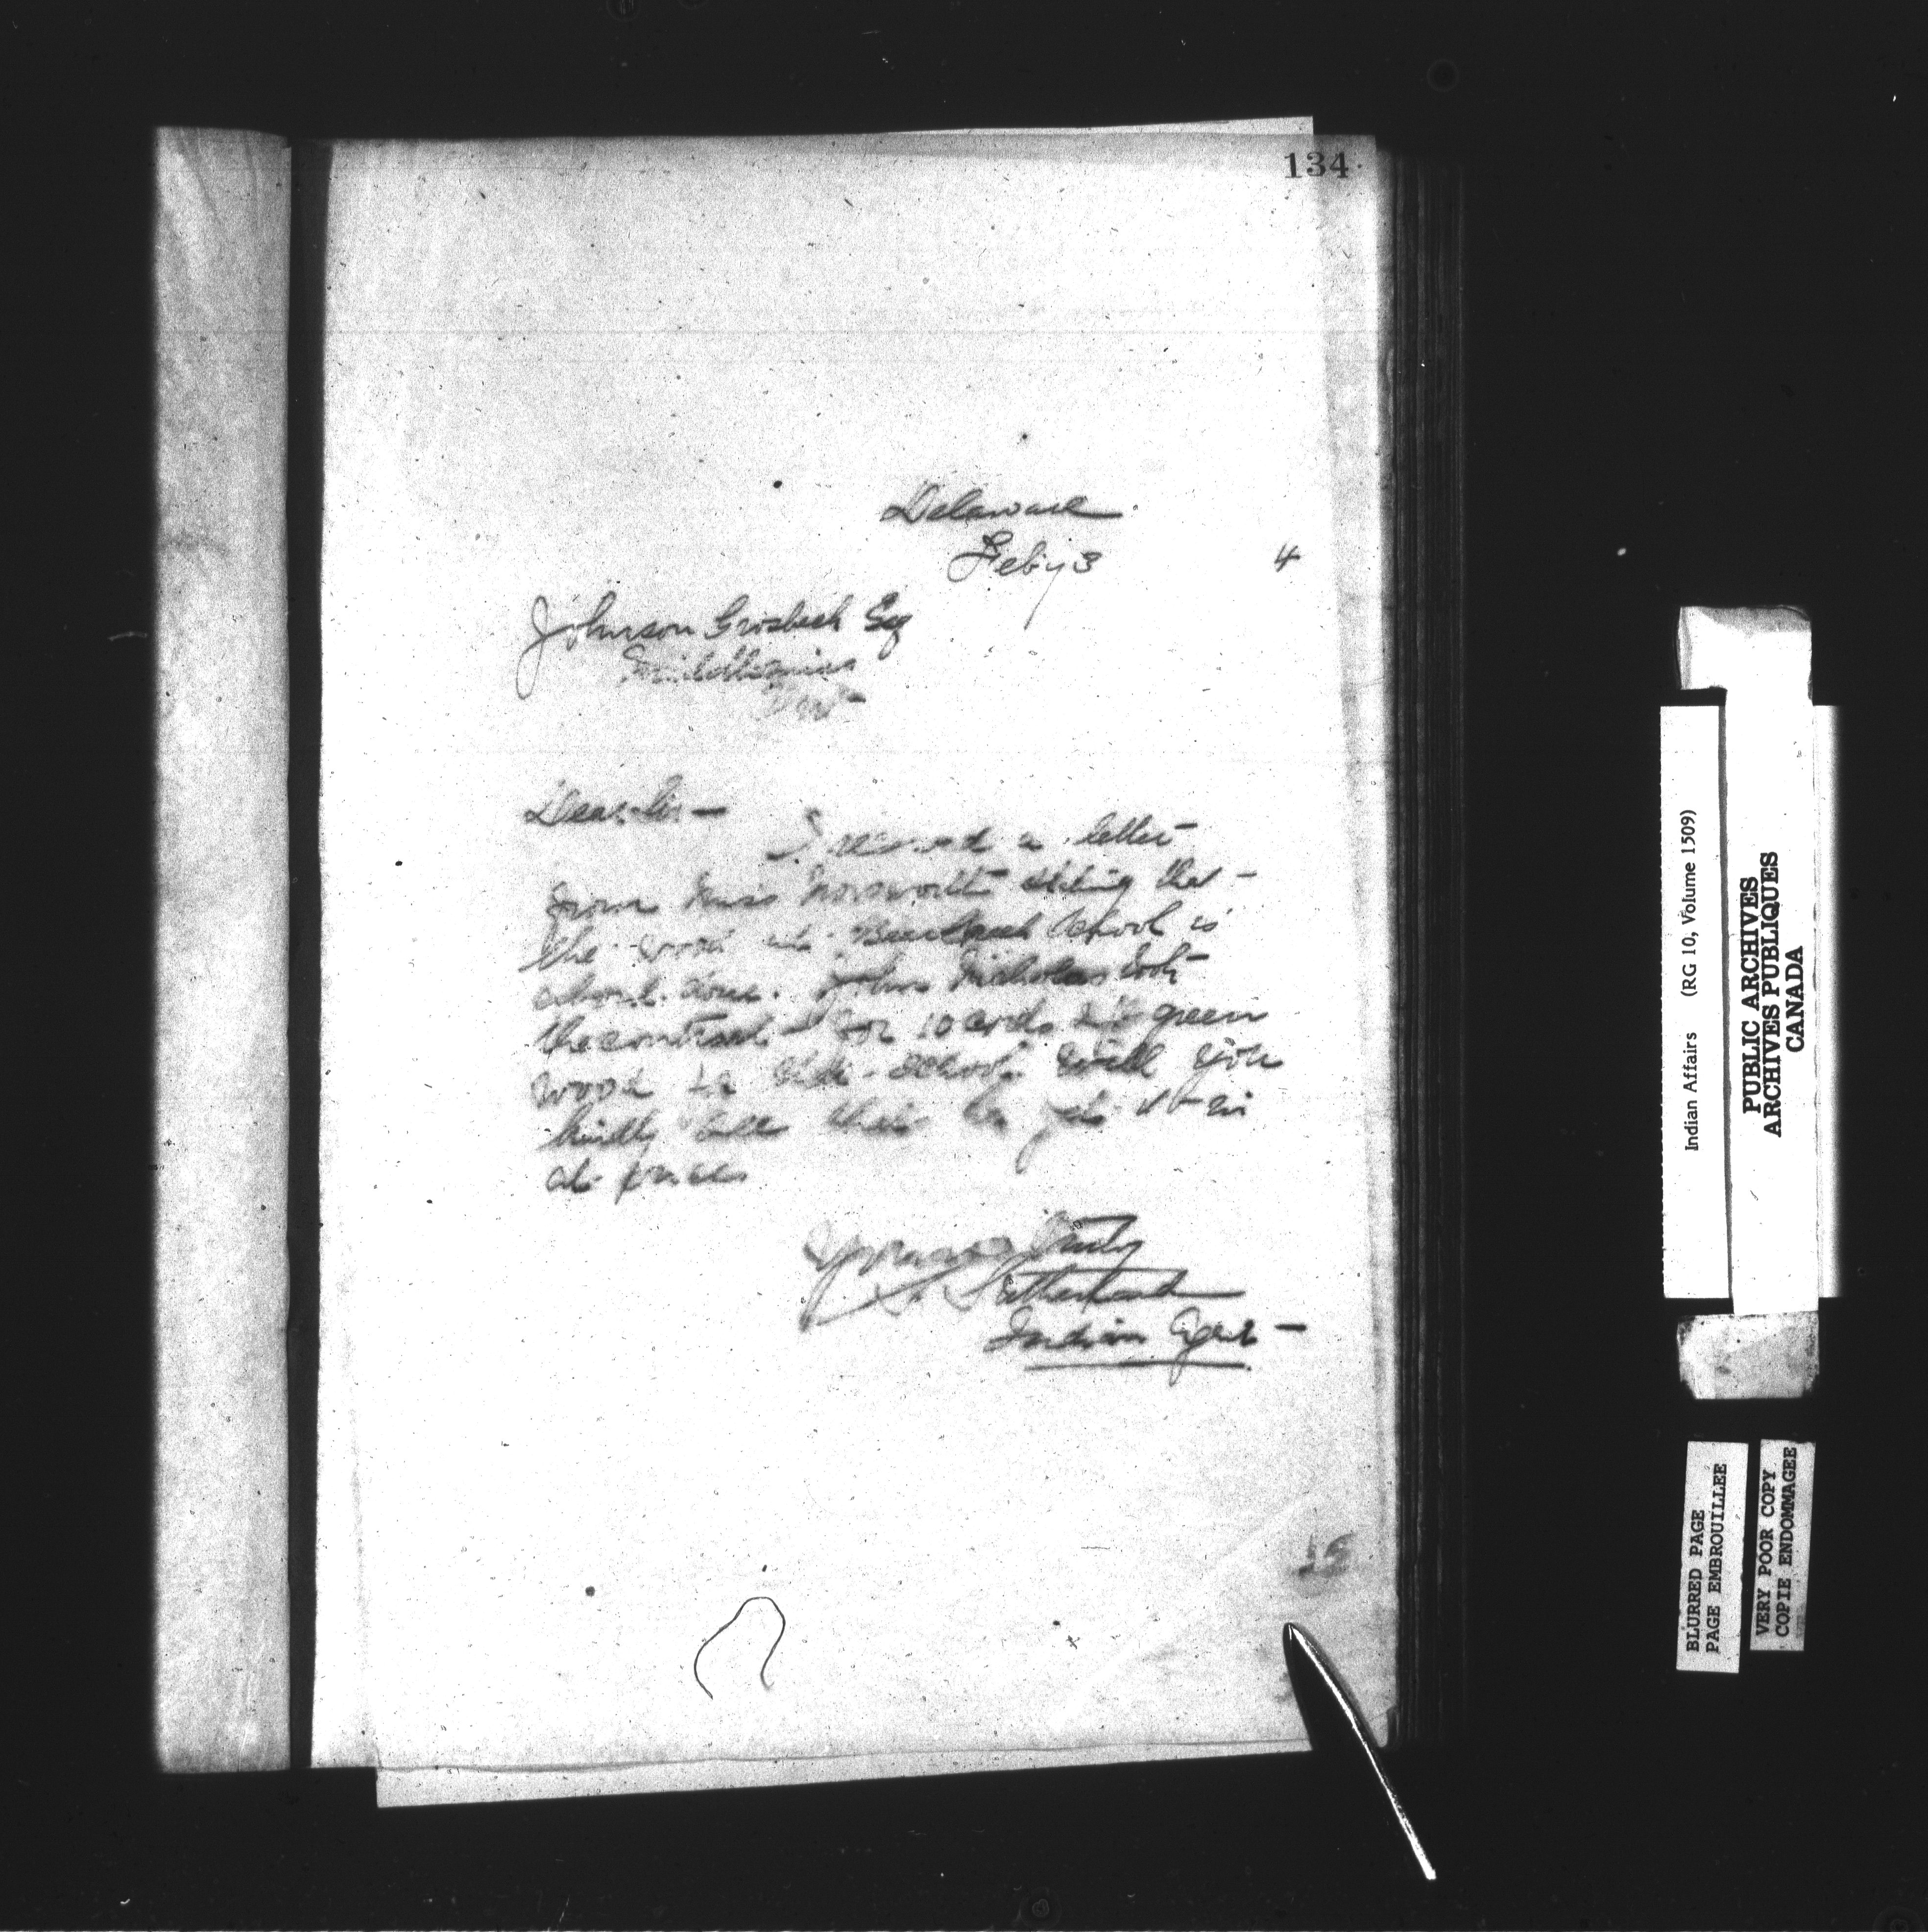 134
Delaware
Feby 3 4
Johnson Grosbeck Esq
Dear Sir —
I received a letter
from Miss stating that
the wood at Bear Creek School is
about done. John Nicholas took
the contract for 10 cords of green
wood to that school will you
kindly tell him to get it in
at
Yours Truly
S. Sutherland
Indian Agent
15
Indian Affairs (RG 10, Volume 1509)
PUBLIC ARCHIVES
ARCHIVES PUBLIQUES
CANADA
BLURRED PAGE
PAGE EMBROUILLEE
VERY POOR COPY
COPIE ENDOMMAGEE